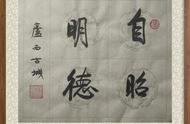 自昭
明德
盧西古城